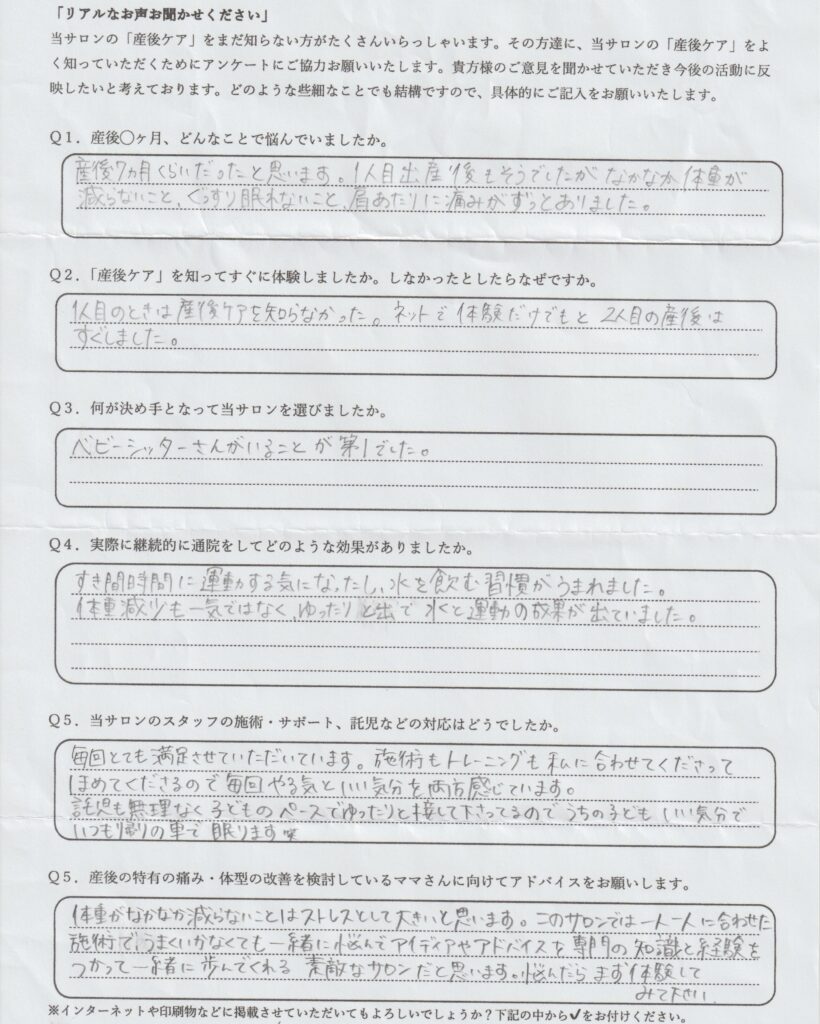 「リアルなお声お聞かせください」
当サロンの「産後ケア」をまだ知らない方がたくさんいらっしゃいます。その方達に、当サロンの「産後ケア」をよ
く知っていただくためにアンケートにご協力お願いいたします。貴方様のご意見を聞かせていただき今後の活動に反
映したいと考えております。どのような些細なことでも結構ですので、具体的にご記入をお願いいたします。
Q1．産後〇ヶ月、どんなことで悩んでいましたか。
産後7ヵ月くらいだったと思います。1人目出産後もそうでしたがなかなか体重が
減らないこと、ぐっすり眠れないこと、肩あたりに痛みがずっとありました。
Q2．「産後ケア」を知ってすぐに体験しましたか。しなかったとしたらなぜですか。
1人目のときは産後ケアを知らなかった。ネットで体験だけでもと2人目の産後は
すぐしました。
Q3．何が決め手となって当サロンを選びましたか。
ベビーシッターさんがいることが第1でした。
Q4．実際に継続的に通院をしてどのような効果がありましたか。
すき間時間に運動する気になったし、水を飲む習慣がうまれました。
体重減少も一気ではなく、ゆったりと出で水と運動の成果が出ていました。
Q5．当サロンのスタッフの施術・サポート、託児などの対応はどうでしたか。
毎回とても満足させていただいています。施術もトレーニングも私に合わせてくださって
ほめてくださるので毎回やる気といい気分を両方感じています。
託児も無理なく子どものペースでゆったりと接して下さってるのでうちの子どもいい気分で
いつも帰りの車で眠ります
Q5．産後の特有の痛み・体型の改善を検討しているママさんに向けてアドバイスをお願いします。
体重がなかなか減らないことはストレスとして大きいと思います。このサロンでは一人一人に合わせた
施術でうまくいかなくても一緒に悩んでアイディアやアドバイスを専門の知識と経験を
つかって一緒に歩んでくれる素敵なサロンだと思います。悩んだらまず体験して
みて下さい。
※インターネットや印刷物などに掲載させていただいてもよろしいでしょうか？下記の中から✔をお付けください。